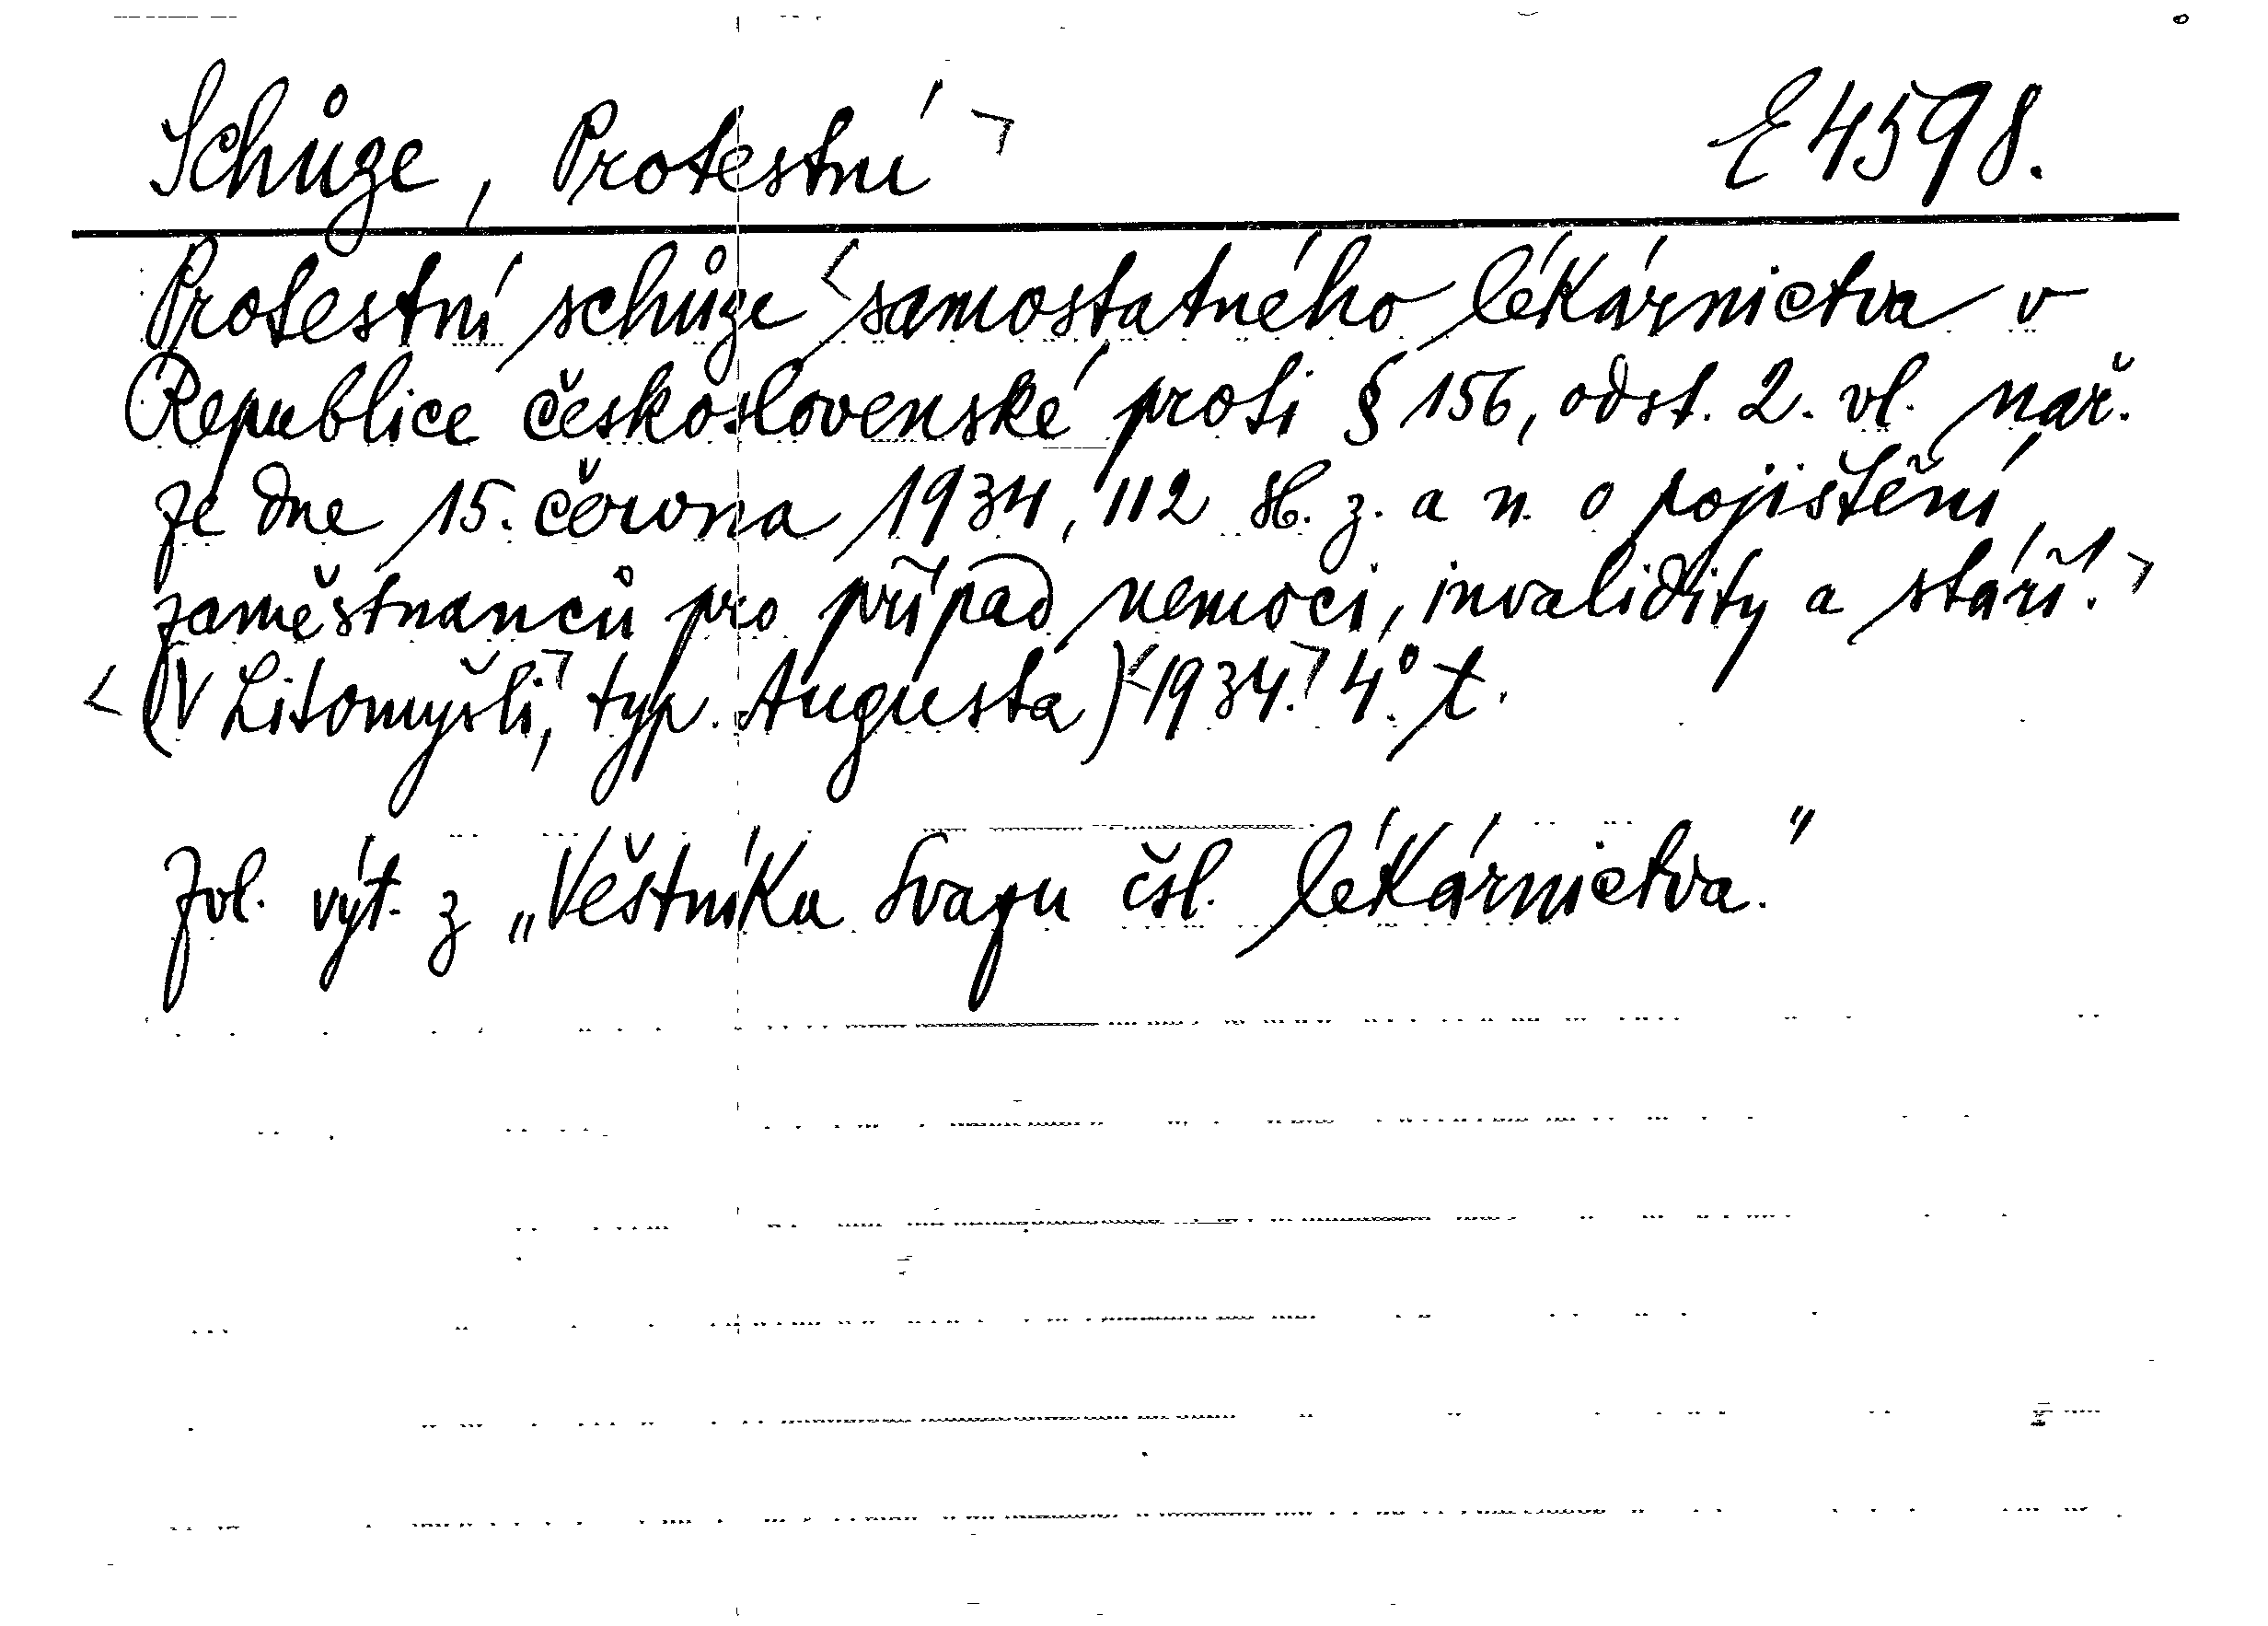 Schůze, Protestní ㄱ E 4598.
Protestní schůze < samostatného lékárnictva v
Republice československé proti § 156, odst. 2. vl. nař.
ze dne 15. června 1934, 112 Sb. z. a n. o pojištění
zaměstnanců pro případ nemoci, invalidity a stáří. ㄱ
< (V Litomyšli, ㄱ typ. Augusta) < 1934. ㄱ 4° t.
Zvl. výt. z „Věštníku Svazu čsl. lékárnictva."